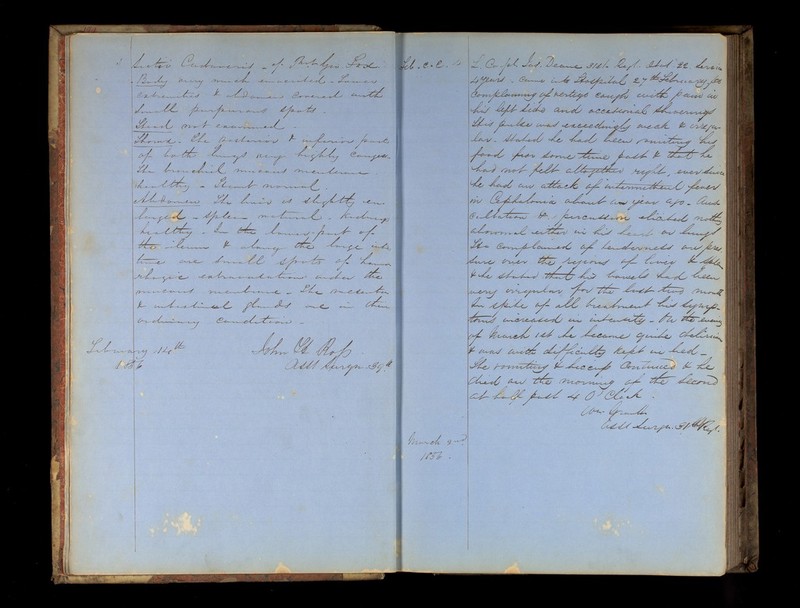 Body very much emaciated. Limbs
extremities & abdomen covered with
small purpurous spots.
Head not examined.
Thorax. The posterior & inferior parts
of both lungs very highly conges
The bronchial mucous membrane
healthy. Heart normal.
Abdomen The liver is slightly en
larged. spleen natural. Kidneys
healthy. In the lower part of
the ilium & along the large intes
tine are small spots of
extravasation under the
mucous membrane. The mesentery
& intestinal glands are in their
ordinary condition.
February 14th
1856
John Ross
Asst Surgn
Feb.
L. Corpl Deane 31st Regt aged 22 Serv
4 years. Came into Hospital 27th February
Complaining of vertigo cough with pain in
his left side and occasional shiverings
The pulse was exceedingly weak & irregu
lar. Stated he had been vomiting his
food for some time past & that he
had not felt altogether right, ever since
he had an attack of intermittent fever
in Cephalonia about a year ago. Aus
cultation & percussion elicited nothg
abnormal either in his heart or lungs
He complained of tenderness on pres
sure over the regions of liver &
& he stated that his bowels had been
very irregular for the last two month
In spite of all treatment his symp
toms increased in intensity. On the eveng
of March 1st he became quite delirious
& was with difficulty kept in bed.
The vomiting & hiccup continued & he
died on the morning of the second
at half past 4 O'Clock.
Asst Surgn. 31st Regt.
March 2nd
1856.